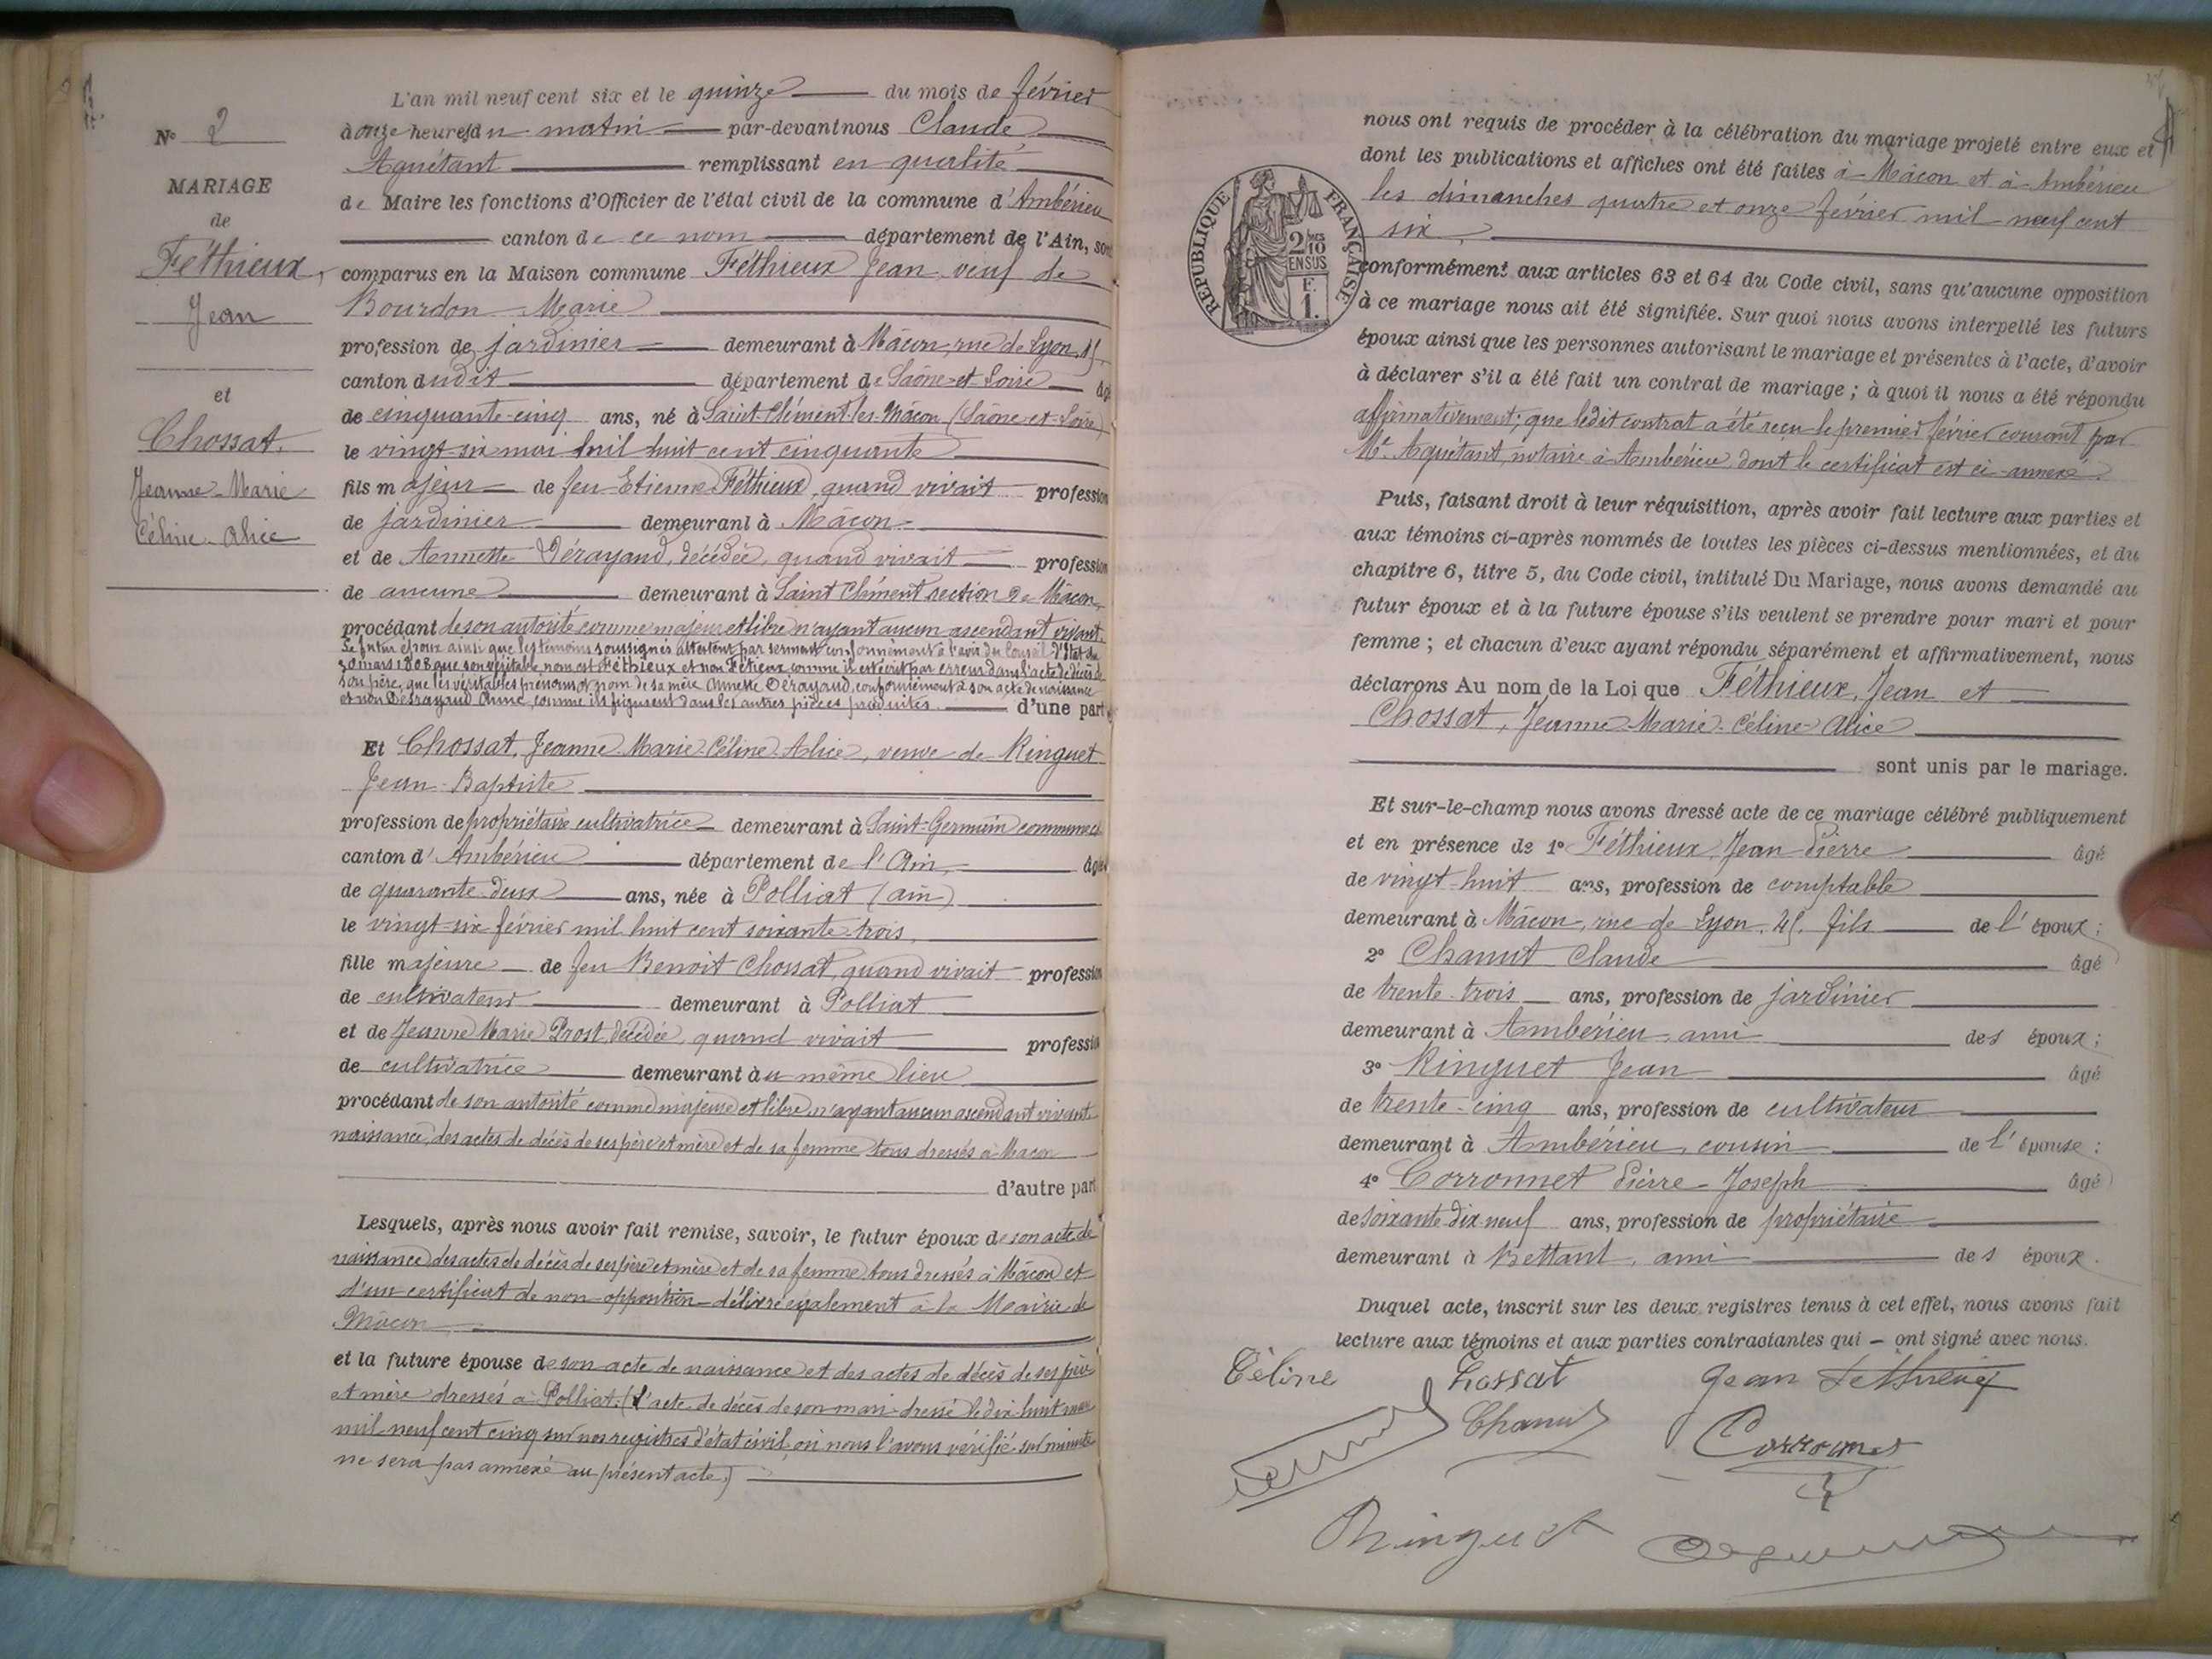 N° 2
MARIAGE
de
Féthieux,
Jean
et
Chossat,
Jeanne-Marie
Céline-Alice
L'an mil neuf cent six et le quinze du mois de février
à onze heures du matin par-devant nous Claude
Aguétant remplissant en qualité
de Maire les fonctions d'Officier de l'état civil de la commune d'Ambérieu
canton de ce nom département de l'Ain, sont
comparus en la Maison commune Féthieux Jean veuf de
Bourdon Marie
profession de jardinier demeurant à Mâcon, rue de Lyon,
canton dudit département de Saône-et-Loire âgé
de cinquante-cinq ans, né à Saint-Clément-les-Mâcon (Saône-et-Loire)
le vingt-six mai mil huit cent cinquante
fils majeur de feu Etienne Féthieux, quand vivait profession
de jardinier demeurant à Mâcon
et de Annette Dérayaud, décédée, quand vivait profession
de aucune demeurant à Saint Clément section de Mâcon,
procédant de son autorité comme majeur et libre n'ayant aucun ascendant vivant.
Le futur époux ainsi que les témoins soussignés attestent par serment conformément à l'avis du Conseil d'Etat du
30 mars 1808 que son véritable nom est Féthieux et non Fétieux comme il est écrit par erreur dans l'acte de décès de
son père, que les véritables prénoms et nom de sa mère Annette Dérayaud, conformément à son acte de naissance
et non Desrayaud Anne, comme ils figurent dans les autres pièces produites. d'une part
Et Chossat, Jeanne-Marie-Céline-Alice, veuve de Ringuet
Jean-Baptiste
profession de propriétaire cultivatrice demeurant à Saint-Germain commune et
canton d'Ambérieu département de l'Ain, âgée
de quarante-deux ans, née à Polliat (Ain)
le vingt-six février mil huit cent soixante-trois,
fille majeure de feu Benoit Chossat, quand vivait profession
de cultivateur demeurant à Polliat
et de Jeanne Marie Prost, décédée, quand vivait profession
de cultivatrice demeurant au même lieu
procédant de son autorité comme majeure et libre n'ayant aucun ascendant vivant
naissance, des actes de décès de ses père et mère et de sa femme tous dressés à Macon
d'autre part
Lesquels, après nous avoir fait remise, savoir, le futur époux de son acte de
naissance des actes de décès de ses père et mère et de sa femme, tous dressés à Mâcon et
d'un certificat de non-opposition délivré également à la Mairie de
Mâcon
et la future épouse de son acte de naissance et des actes de décès de ses père
et mère dressés à Polliat. (L'acte de décès de son mari dressé le dix-huit
mil neuf cent cinq sur nos registres d'état civil, où nous l'avons vérifié sur minute
ne sera pas annexé au présent acte.)
RÉPUBLIQUE FRANÇAISE
2/10
EN SUS
F.
1.
nous ont requis de procéder à la célébration du mariage projeté entre eux et
dont les publications et affiches ont été faites à Mâcon et à Ambérieu
les dimanches quatre et onze février mil neuf cent
six,
conformément aux articles 63 et 64 du Code civil, sans qu'aucune opposition
à ce mariage nous ait été signifiée. Sur quoi nous avons interpellé les futurs
époux ainsi que les personnes autorisant le mariage et présentes à l'acte, d'avoir
à déclarer s'il a été fait un contrat de mariage ; à quoi il nous a été répondu
affirmativement ; que ledit contrat a été reçu le premier février courant par
Me Aguétant, notaire à Ambérieu, dont le certificat est ci-annexé.
Puis, faisant droit à leur réquisition, après avoir fait lecture aux parties et
aux témoins ci-après nommés de toutes les pièces ci-dessus mentionnées, et du
chapitre 6, titre 5, du Code civil, intitulé Du Mariage, nous avons demandé au
futur époux et à la future épouse s'ils veulent se prendre pour mari et pour
femme ; et chacun d'eux ayant répondu séparément et affirmativement, nous
déclarons Au nom de la Loi que Féthieux, Jean et
Chossat, Jeanne-Marie-Céline Alice
sont unis par le mariage.
Et sur-le-champ nous avons dressé acte de ce mariage célébré publiquement
et en présence de 1° Féthieux, Jean Pierre âgé
de vingt-huit ans, profession de comptable
demeurant à Mâcon, rue de Lyon, fils de l'époux ;
2° Chanut Claude âgé
de trente-trois ans, profession de jardinier
demeurant à Ambérieu, ami des époux ;
3° Ringuet Jean âgé
de trente-cinq ans, profession de cultivateur
demeurant à Ambérieu, cousin de l'épouse ;
4° Corronnet Pierre-Joseph âgé
de soixante-dix-neuf ans, profession de propriétaire
demeurant à Bettant, ami des époux.
Duquel acte, inscrit sur les deux registres tenus à cet effet, nous avons fait
lecture aux témoins et aux parties contractantes qui – ont signé avec nous.
Céline Chossat Jean Féthieux
Chanut Corronnet
Ringuet